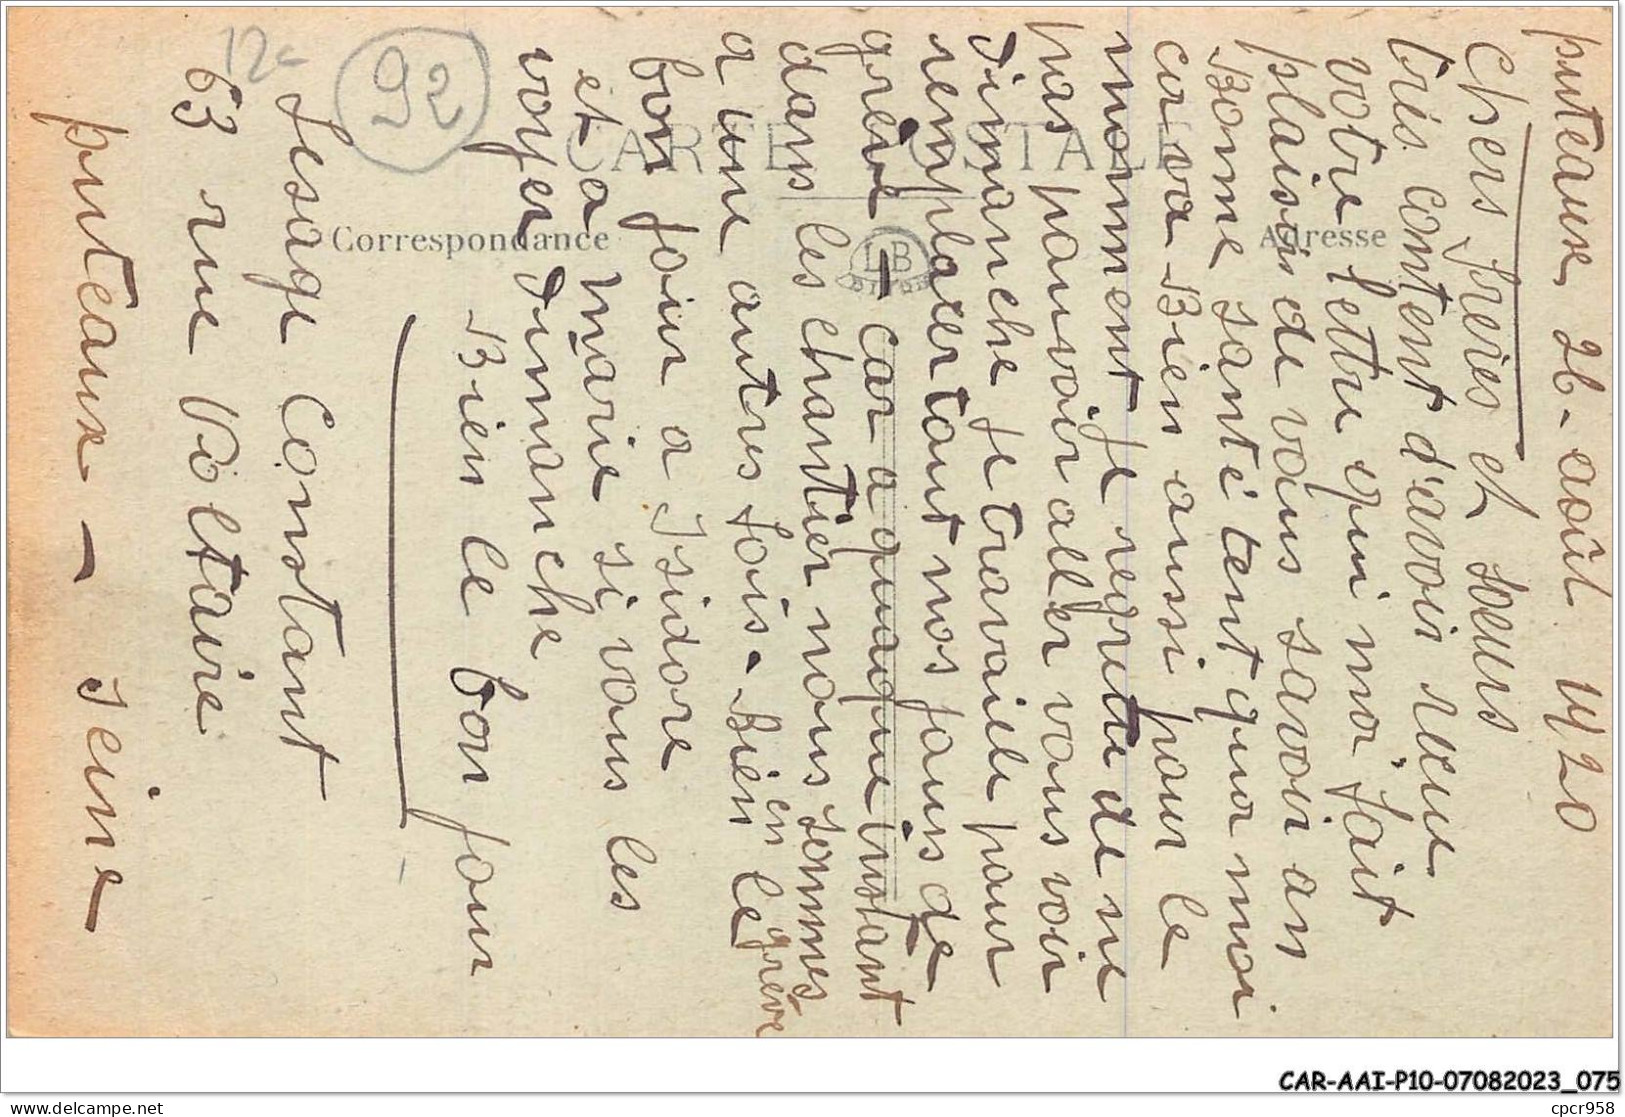 puteaux 26 - août 1920
Chers frères et soeurs
très content d'avoir reçu
votre lettre qui m'a fait
plaisir de vous savoir an
Bonne santé tent qua moi
ca va Bien aussi pour le
moment je regrette de ne
pas pouvoir aller vous voir
Dimanche je travaille pour
remplacer tout nos jours de
grève - car a quaque instant
dans les chantier nous sommes
en grève
a une autres fois - Bien le
bon jour a Isidore
et a marie si vous les
voyer Dimanche
Bien le bon jour
Lesage Constant
63 rue Voltaire
puteaux - seine
12c
92
CARTE POSTALE
Correspondance
Adresse
LB
DIJON
CAR-AAI-P10-07082023_075
cpcr958